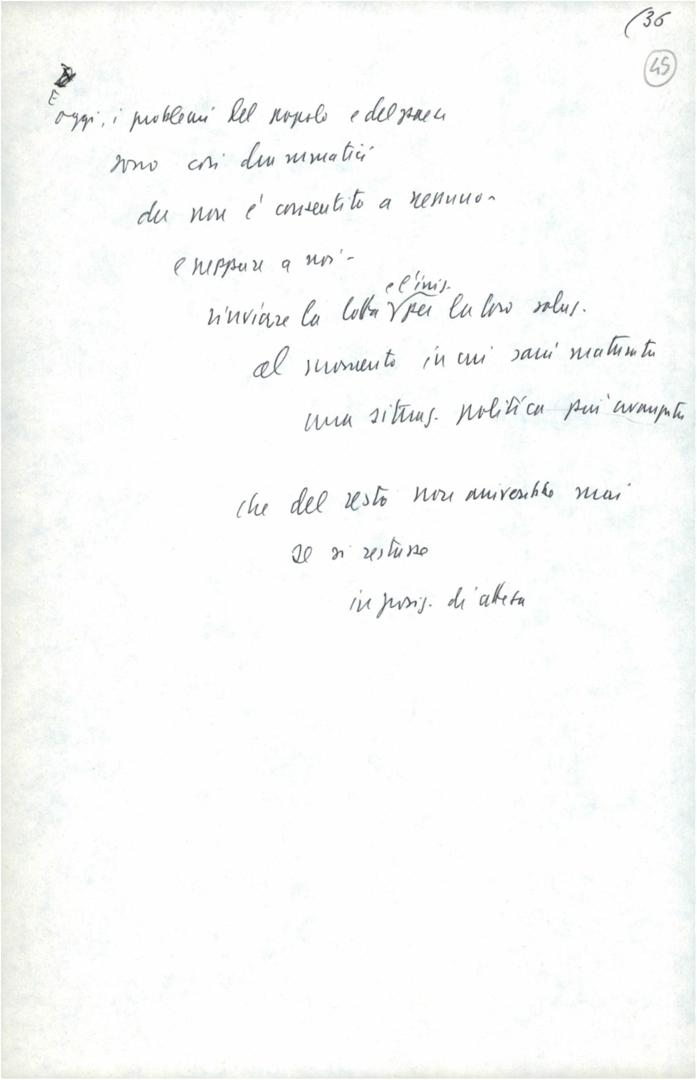 (36
45
E
oggi, i problemi del popolo e del paese
sono così drammatici
che non è consentito a nessuno -
e neppure a noi -
e l'iniz.
rinviare la lotta per la loro soluz.
al momento in cui sarà maturata
una situaz. politica più avanzata
che del resto non arriverebbe mai
se si restasse
in posiz. di attesa